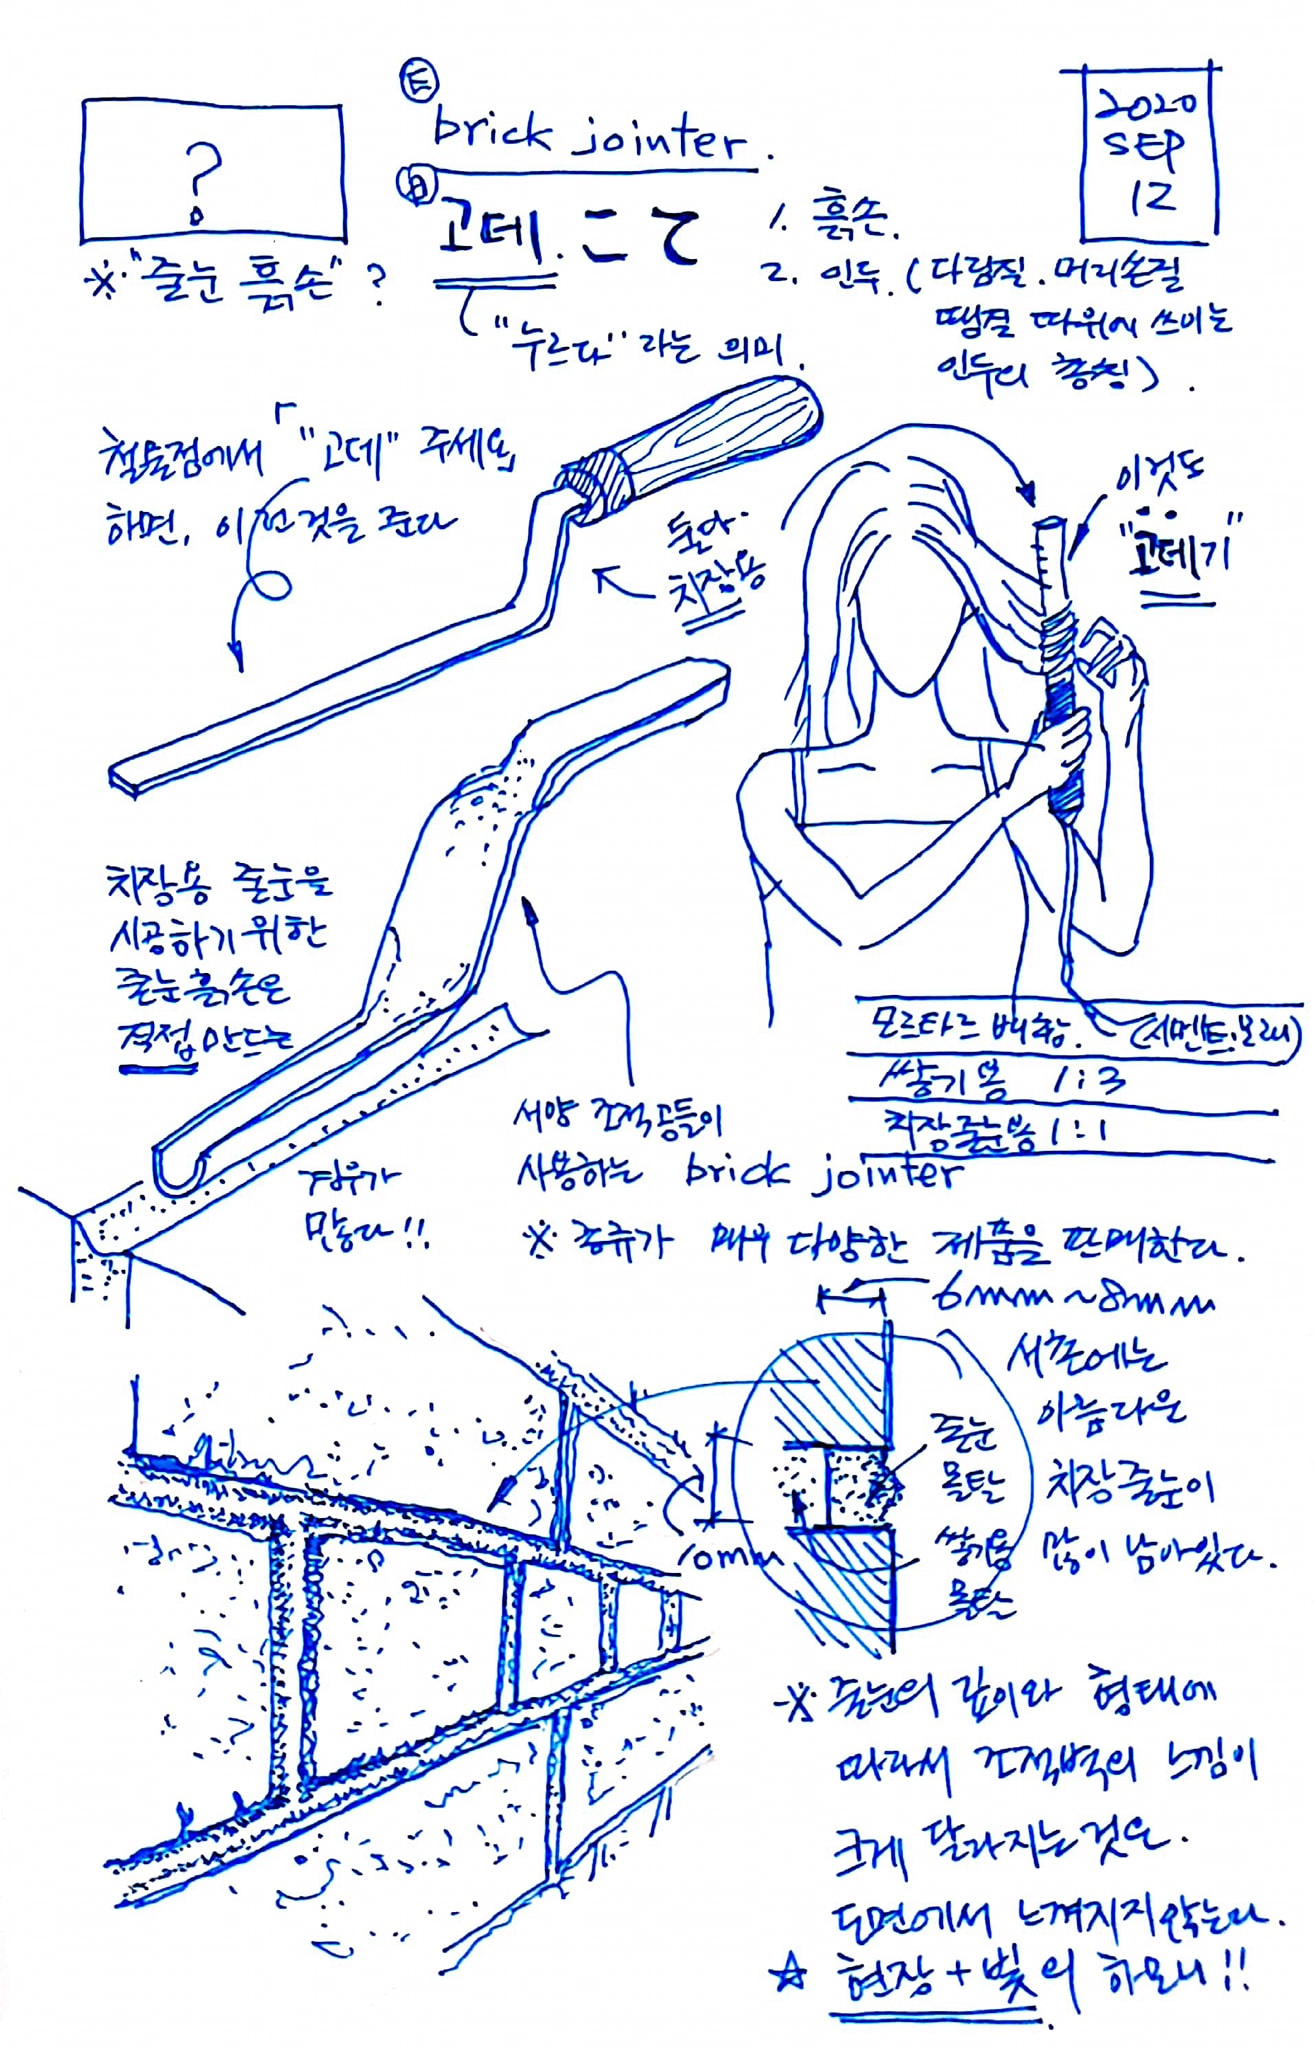 ?
※ "줄눈 흙손"?
Ⓔ
brick jointer.
고데. こて
"누르다" 라는 의미.
1. 흙손.
2. 인두. (다림질. 머리손질
땜질 따위에 쓰이는
인두의 총칭).
2020
SEP
12
철물점에서 「"고데" 주세요」
하면, 이런것을 준다
치장용
이것도
"고데기"
치장용 줄눈을
시공하기 위한
줄눈흙손은
직접 만드는
경우가
많다!!
서양 조적공들이
사용하는 brick jointer
※ 종류가 매우 다양한 제품을 판매한다.
모르타르 배합. (시멘트:모래)
쌓기용 1:3
치장줄눈용 1:1
6mm~8mm
10mm
줄눈
몰탈
쌓기용
몰탈
서촌에는
아름다운
치장줄눈이
많이 남아있다.
※ 줄눈의 깊이와 형태에
따라서 조적벽의 느낌이
크게 달라지는것은.
도면에서 느껴지지않는다.
☆ 현장+빛의 하모니!!